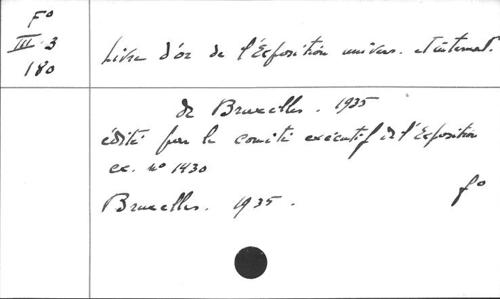 F°
III. 3
180
Livre d'or de l'Exposition univers. et internat.
de Bruxelles. 1935
édité par le comité exécutif de l'Exposition
ex. n° 1430
Bruxelles. 1935.
f°